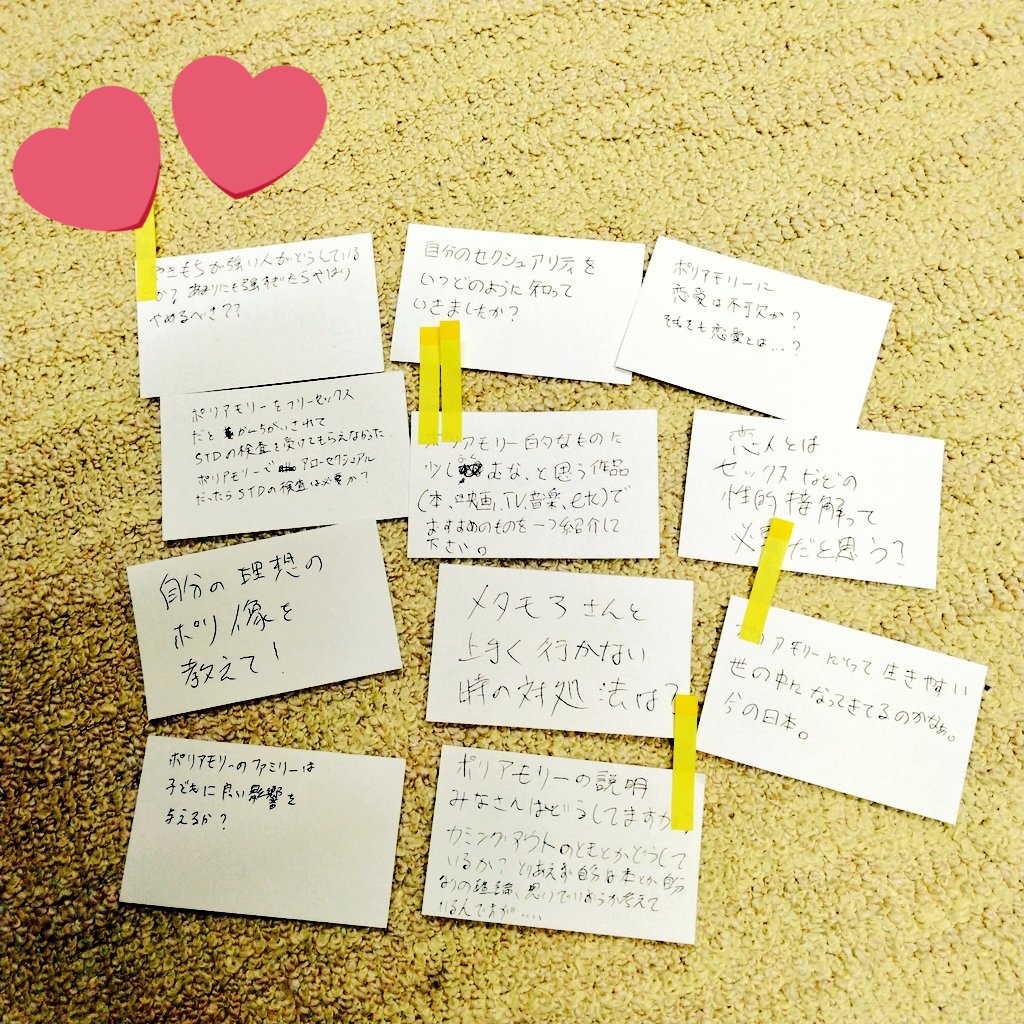 やきもちが強い人がどうしている
か？あまりにも強すぎたらやはり
やめるべき？？
自分のセクシュアリティを
いつどのように知って
いきましたか？
ポリアモリーに
恋愛は不可欠か？
そもそも恋愛とは…？
ポリアモリーをフリーセックス
だとかんちがいされて
STDの検査を受けてもらえなかった．
ポリアモリーで アローセクシュアル
だったらSTDの検査は必要か？
リアモリー的なものに
少し むな、と思う作品
(本、映画、TV、音楽、etc)で
おすすめのものを一つ紹介して
下さい。
恋人とは
セックスなどの
性的接解って
必要だと思う？
自分の理想の
ポリ像を
教えて！
メタモアさんと
上手く行かない
時の対処法は？
アモリーにとって生きやすい
世の中になってきてるのかなぁ。
今の日本。
ポリアモリーのファミリーは
子どもに良い影響を
与えるか？
ポリアモリーの説明
みなさんはどうしてますか
カミングアウトのときとかどうして
いるか？とりあえず自分は本とか自分
なりの理論、思いでいおうか考えて
いるんですが….